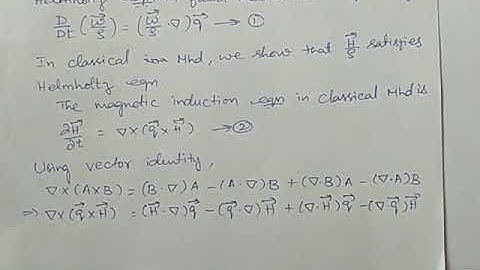 Helmholtz eqn in
D/Dt (w⃗/ρ) = (w⃗/ρ · ∇) q⃗ → ①
In classical Mhd, we show that H⃗/ρ satisfies
Helmholtz eqn.
The magnetic induction eqn in classical Mhd is
∂H⃗/∂t = ∇×(q⃗×H⃗) → ②
Using vector identity,
∇×(A×B) = (B·∇)A − (A·∇)B + (∇·B)A − (∇·A)B
⇒ ∇×(q⃗×H⃗) = (H⃗·∇)q⃗ − (q⃗·∇)H⃗ + (∇·H⃗)q⃗ − (∇q⃗)H⃗